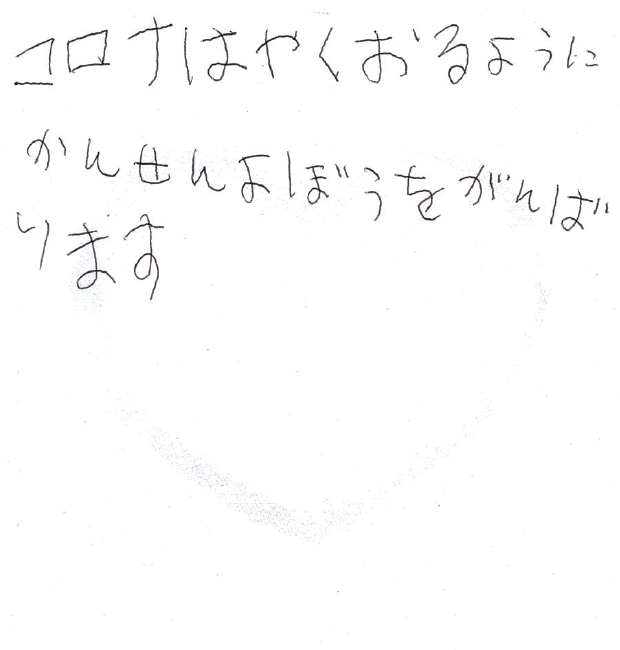 コロナはやくおるように
かんせんよぼうをがんば
ります